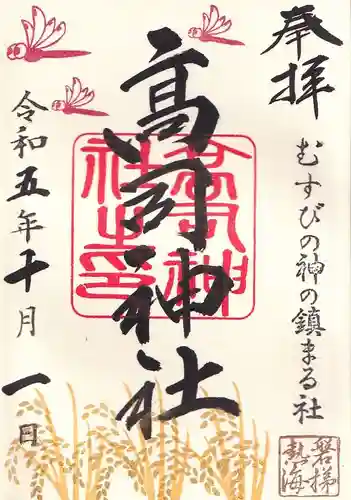 奉拝
むすびの神の鎮まる社
高司神社
令和五年十月一日
磐梯
熱海